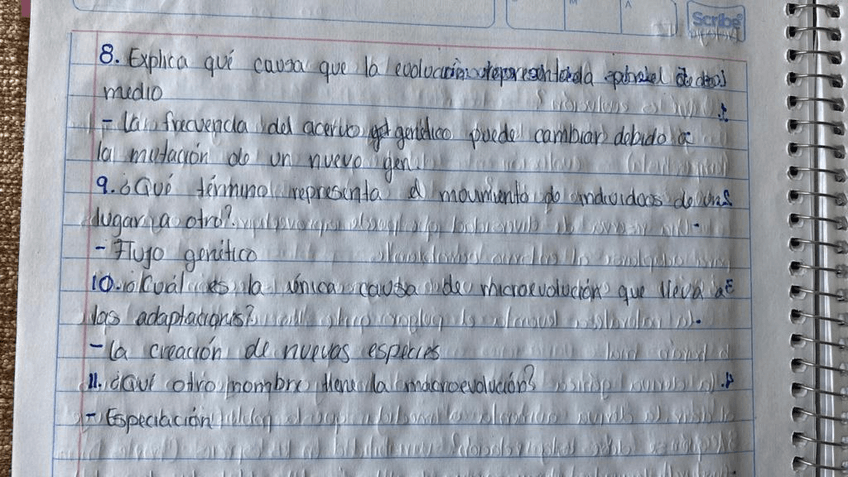 Scribe
8. Explica qué causa que la evolución representada por el de los
medio
- La frecuencia del acervo genético puede cambiar debido a
la mutación de un nuevo gen.
9. ¿Qué término representa el movimiento de individuos de un
lugar a otro?
- Flujo genético
10. ¿Cuál es la única causa de microevolución que lleva a
las adaptaciones?
- La creación de nuevas especies
11. ¿Qué otro nombre tiene la macroevolución?
- Especiación